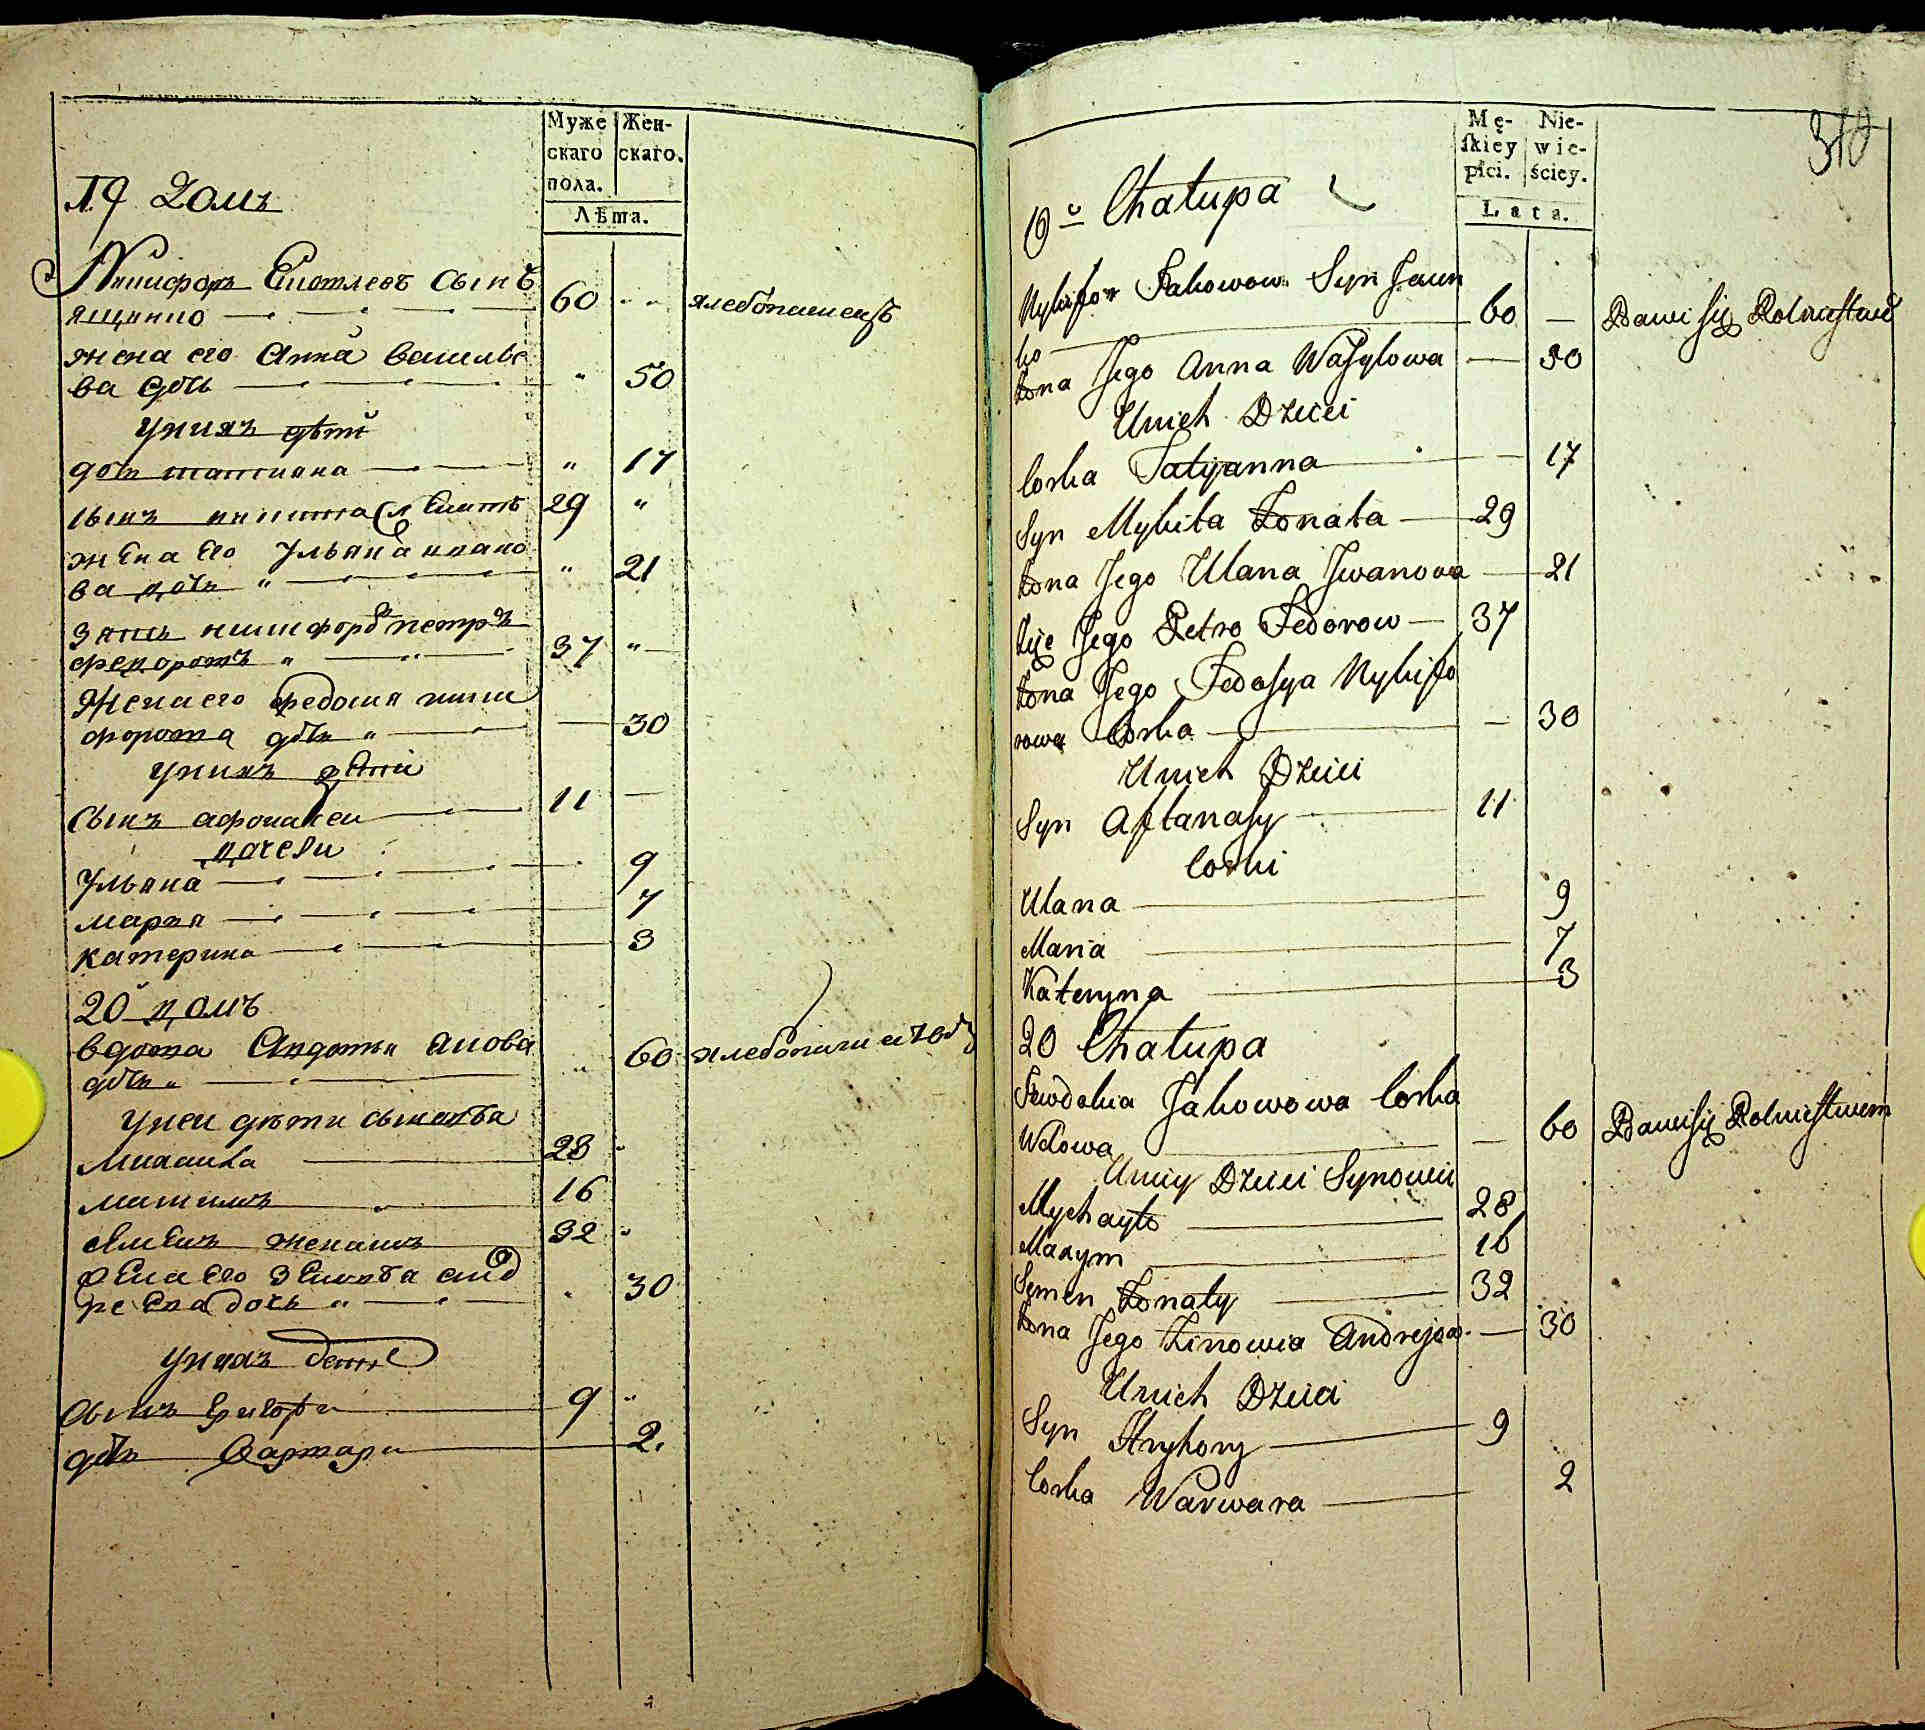 Муже
скаго
пола.
Жен-
скаго.
Лѣта.
19 Домъ
сынъ
60
хлебопашець
жена его Анна василье
ва дочь
50
унихъ дѣти
дочь татиана
17
сынъ никита
29
жена его Ульяна ивано
ва дочь
21
зять никифоръ петръ
федоровъ
37
Жена его федосия ники
форова дочь
30
унихъ дети
сынъ афонасеи
11
дочери
Ульяна
9
мария
7
катерина
3
20 домъ
вдова Авдотья
дочь
60
унеи дети сыновья
михаила
28
максимъ
16
семенъ женатъ
32
жена его зеновья анд
реева дочь
30
унихъ дети
сынъ григори
9
дочь Варвара
2.
Mę-
ſkiey
płci.
Nie-
wie-
ściey.
Lata.
310
19 Chałupa
Nykifor Jakowow Syn Jaun
ko
60
Bawi się Rolnictwem
Żona Jego Anna Wasylowa
50
Unich Dzieci
Corka Tatyanna
17
Syn Mykita Żonata
29
Żona Jego Ulana Jwanowa
21
Jego Petro Fedorow
37
Żona Jego Fedosya Nykifo
rowa Corka
30
Unich Dzieci
Syn Aftanasy
11
Corki
Ulana
9
Maria
7
Kateryna
3
20 Chałupa
Jakowowa Corka
Wdowa
60
Bawi się Rolnictwem
Uniey Dzieci Synowie
Mychayło
28
Maxym
16
Semen Żonaty
32
Żona Jego Zinowia Andrejow
30
Unich Dzieci
Syn Hryhory
9
Corka Warwara
2